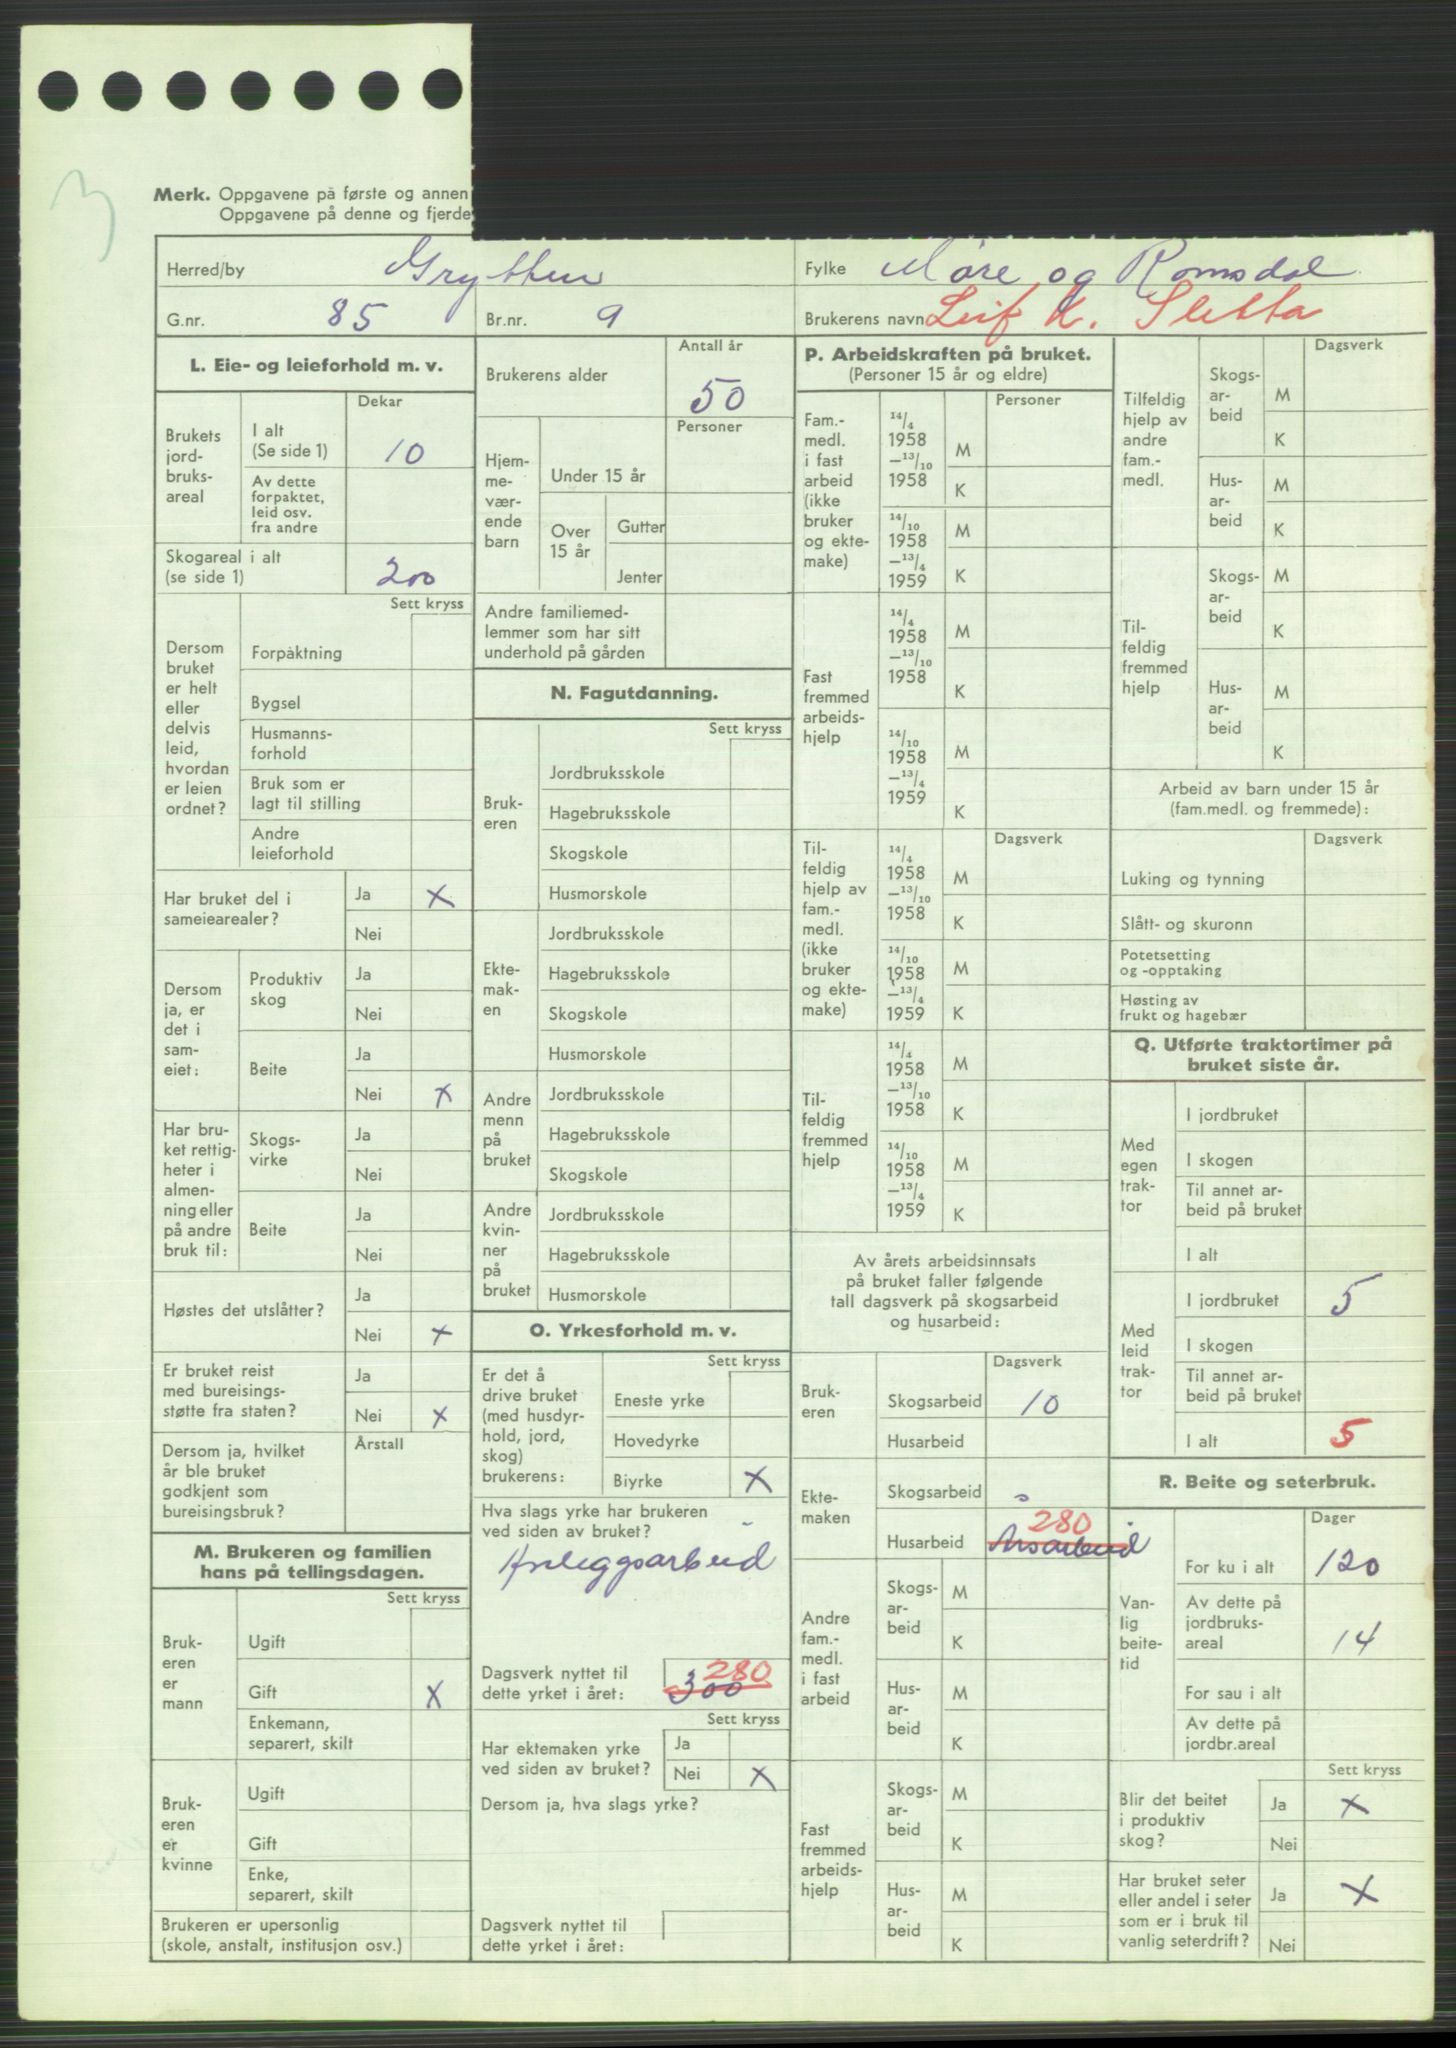 3
Merk. Oppgavene på første og annen
Oppgavene på denne og fjerde
Herred/by Grytten
Fylke Møre og Romsdal
G.nr. 85 Br.nr. 9
Brukerens navn Leif K. Sletta
L. Eie- og leieforhold m. v.
Dekar
Brukets jord-bruks-areal
I alt (Se side 1) 10
Av dette forpaktet, leid osv. fra andre
Skogareal i alt (se side 1) 200
Sett kryss
Dersom bruket er helt eller delvis leid, hvordan er leien ordnet?
Forpaktning
Bygsel
Husmanns-forhold
Bruk som er lagt til stilling
Andre leieforhold
Har bruket del i sameiearealer?
Ja X
Nei
Dersom ja, er det i sam-eiet:
Produktiv skog
Ja
Nei
Beite
Ja
Nei X
Har bru-ket rettig-heter i almen-ning eller på andre bruk til:
Skogs-virke
Ja
Nei
Beite
Ja
Nei
Høstes det utslåtter?
Ja
Nei X
Er bruket reist med bureisings-støtte fra staten?
Ja
Nei X
Dersom ja, hvilket år ble bruket godkjent som bureisingsbruk?
Årstall
M. Brukeren og familien hans på tellingsdagen.
Sett kryss
Bruk-eren er mann
Ugift
Gift X
Enkemann, separert, skilt
Bruk-eren er kvinne
Ugift
Gift
Enke, separert, skilt
Brukeren er upersonlig (skole, anstalt, institusjon osv.)
Antall år
Brukerens alder 50
Personer
Hjem-me-vær-ende barn
Under 15 år
Over 15 år
Gutter
Jenter
Andre familiemed-lemmer som har sitt underhold på gården
N. Fagutdanning.
Sett kryss
Bruk-eren
Jordbruksskole
Hagebruksskole
Skogskole
Husmorskole
Ekte-mak-en
Jordbruksskole
Hagebruksskole
Skogskole
Husmorskole
Andre menn på bruket
Jordbruksskole
Hagebruksskole
Skogskole
Andre kvin-ner på bruket
Jordbruksskole
Hagebruksskole
Husmorskole
O. Yrkesforhold m. v.
Sett kryss
Er det å drive bruket (med husdyr-hold, jord, skog) brukerens:
Eneste yrke
Hovedyrke
Biyrke X
Hva slags yrke har brukeren ved siden av bruket?
Anleggsarbeid
Dagsverk nyttet til dette yrket i året: 300 280
Sett kryss
Har ektemaken yrke ved siden av bruket?
Ja
Nei X
Dersom ja, hva slags yrke?
Dagsverk nyttet til dette yrket i året:
P. Arbeidskraften på bruket.
(Personer 15 år og eldre)
Personer
Fam.-medl. i fast arbeid (ikke bruker og ekte-make)
14/4 1958 –13/10 1958
M
K
14/10 1958 –13/4 1959
M
K
Fast fremmed arbeids-hjelp
14/4 1958 –13/10 1958
M
K
14/10 1958 –13/4 1959
M
K
Dagsverk
Til-feldig hjelp av fam.-medl. (ikke bruker og ekte-make)
14/4 1958 –13/10 1958
M
K
14/10 1958 –13/4 1959
M
K
Til-feldig fremmed hjelp
14/4 1958 –13/10 1958
M
K
14/10 1958 –13/4 1959
M
K
Av årets arbeidsinnsats
på bruket faller følgende
tall dagsverk på skogsarbeid
og husarbeid:
Dagsverk
Bruk-eren
Skogsarbeid 10
Husarbeid
Ekte-maken
Skogsarbeid
Husarbeid Årsarbeid 280
Andre fam.-medl. i fast arbeid
Skogs-ar-beid
M
K
Hus-ar-beid
M
K
Fast fremmed arbeids-hjelp
Skogs-ar-beid
M
K
Hus-ar-beid
M
K
Dagsverk
Tilfeldig hjelp av andre fam.-medl.
Skogs-ar-beid
M
K
Hus-ar-beid
M
K
Til-feldig fremmed hjelp
Skogs-ar-beid
M
K
Hus-ar-beid
M
K
Arbeid av barn under 15 år
(fam.medl. og fremmede):
Dagsverk
Luking og tynning
Slått- og skuronn
Potetsetting og -opptaking
Høsting av frukt og hagebær
Q. Utførte traktortimer på bruket siste år.
Med egen trak-tor
I jordbruket
I skogen
Til annet ar-beid på bruket
I alt
Med leid trak-tor
I jordbruket 5
I skogen
Til annet ar-beid på bruket
I alt 5
R. Beite og seterbruk.
Dager
Van-lig beite-tid
For ku i alt 120
Av dette på jordbruks-areal 14
For sau i alt
Av dette på jordbr.areal
Sett kryss
Blir det beitet i produktiv skog?
Ja X
Nei
Har bruket seter eller andel i seter som er i bruk til vanlig seterdrift?
Ja X
Nei